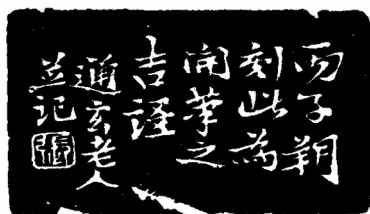 丙子朔
刻此為
開筆之
吉譯
通玄老人
並记